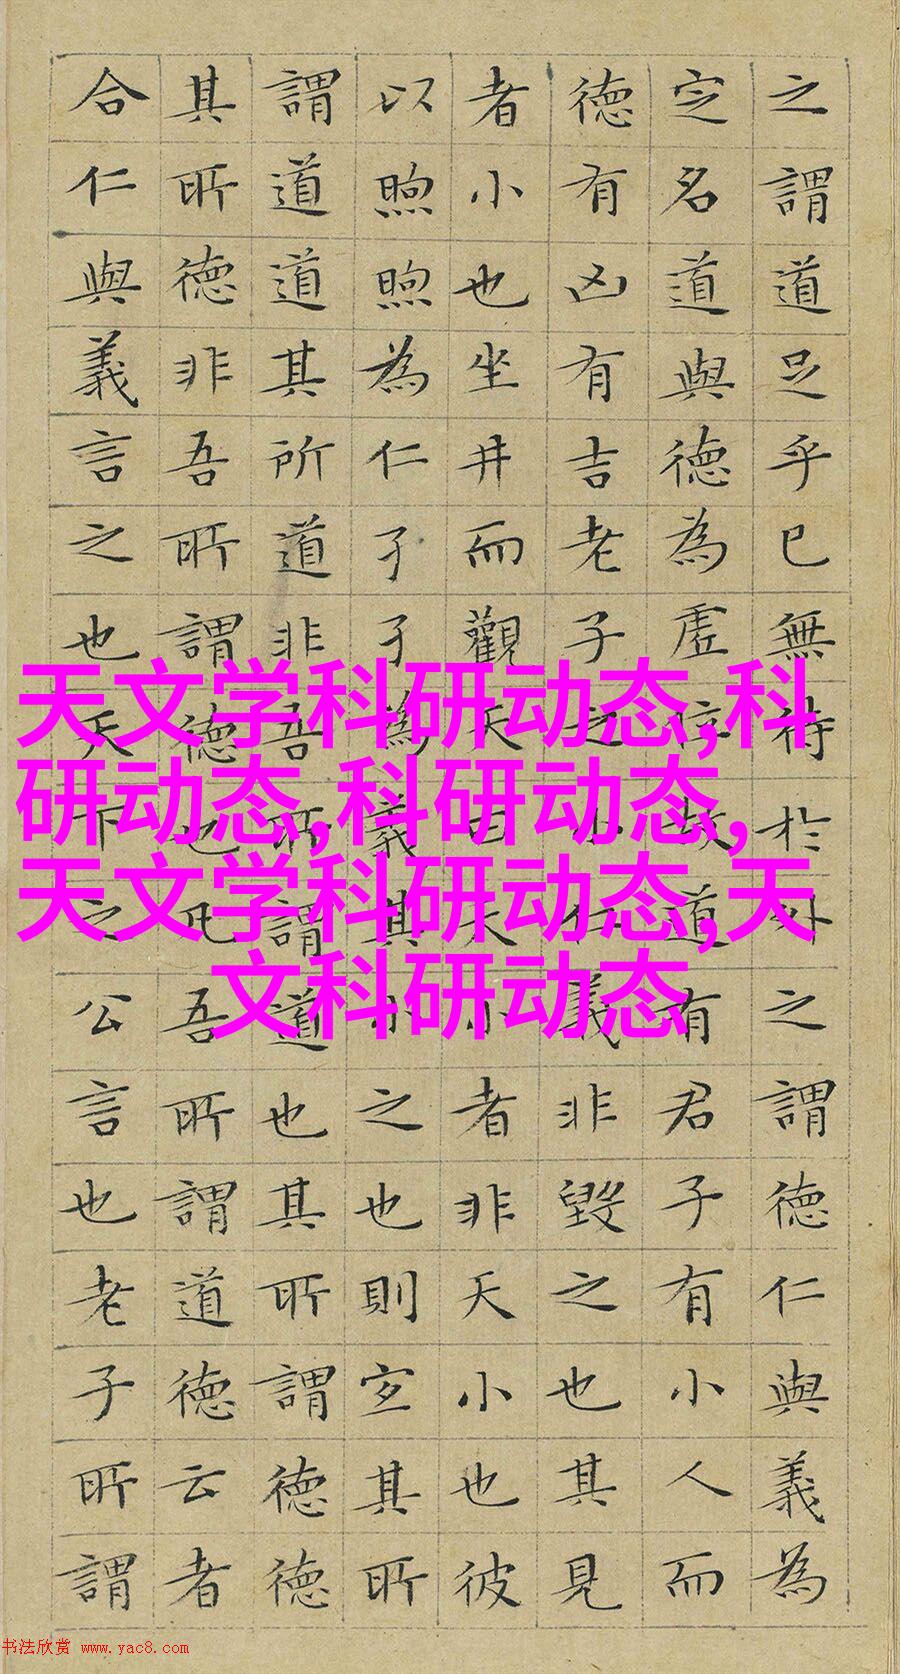 之謂道足乎已無待於外之謂德仁與義為
定名道與德為虛位故道有君子有小人而
德有凶有吉老子之小仁義非毀之也其見
者小也坐井而觀天曰天小者非天小也彼
以煦煦為仁孑孑為義其小之也則宜其所
謂道道其所道非吾所謂道也其所謂德德
其所德非吾所謂德也凡吾所謂道德云者
合仁與義言之也天下之公言也老子所謂
天文学科研动态,科
研动态,科研动态,
天文学科研动态,天
文科研动态
书法欣赏 www.yac8.com